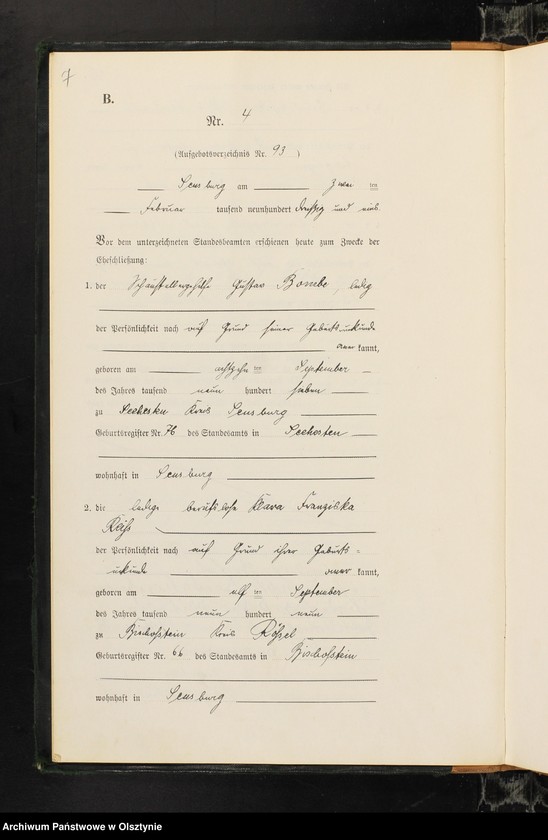 7
B.
Nr. 4
(Aufgebotsverzeichnis Nr. 93 )
Sensburg am zwei ten
Februar tausend neunhundert dreißig und eins
Vor dem unterzeichneten Standesbeamten erschienen heute zum Zwecke der
Eheschließung:
1. der Gustav Bombe, ledig
der Persönlichkeit nach auf Grund seiner Geburtsurkunde
kannt,
geboren am achtzehn ten September
des Jahres tausend neun hundert sieben
zu Seehesten Kreis Sensburg
Geburtsregister Nr. 76 des Standesamts in Seehesten
wohnhaft in Sensburg
2. die ledige berufslose Klara Franziska
der Persönlichkeit nach auf Grund ihrer Geburts-
urkunde kannt,
geboren am elf ten September
des Jahres tausend neun hundert neun
zu Bischofstein Kreis Rößel
Geburtsregister Nr. 66 des Standesamts in Bischofstein
wohnhaft in Sensburg
Archiwum Państwowe w Olsztynie